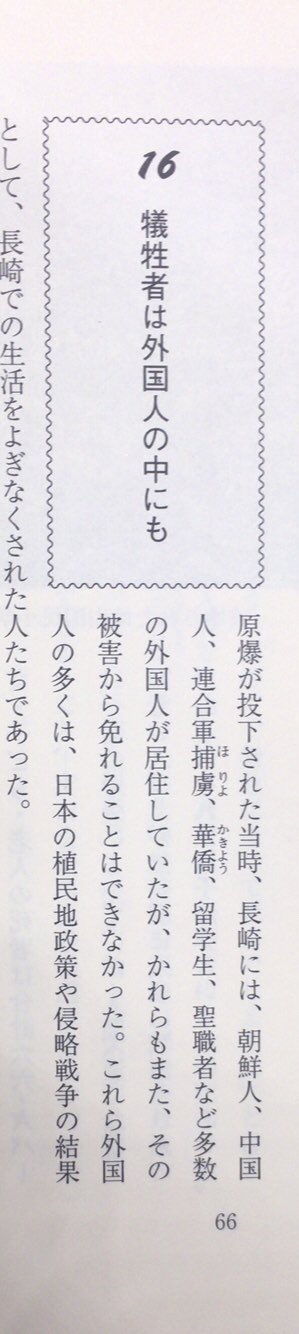 16
犠牲者は外国人の中にも
原爆が投下された当時、長崎には、朝鮮人、中国
人、連合軍捕虜、華僑、留学生、聖職者など多数
ほりよ
かきよう
の外国人が居住していたが、かれらもまた、その
被害から免れることはできなかった。これら外国
人の多くは、日本の植民地政策や侵略戦争の結果
として、長崎での生活をよぎなくされた人たちであった。
66